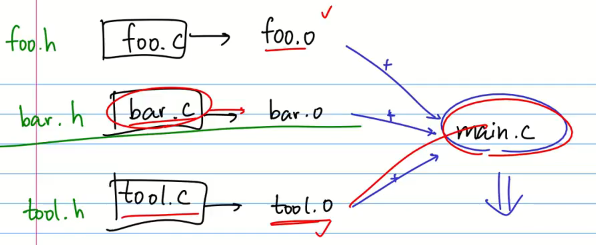 foo.h foo.c → foo.o ✓
+
bar.h bar.c → bar.o + main.c
tool.h tool.c → tool.o + ⇓
✓